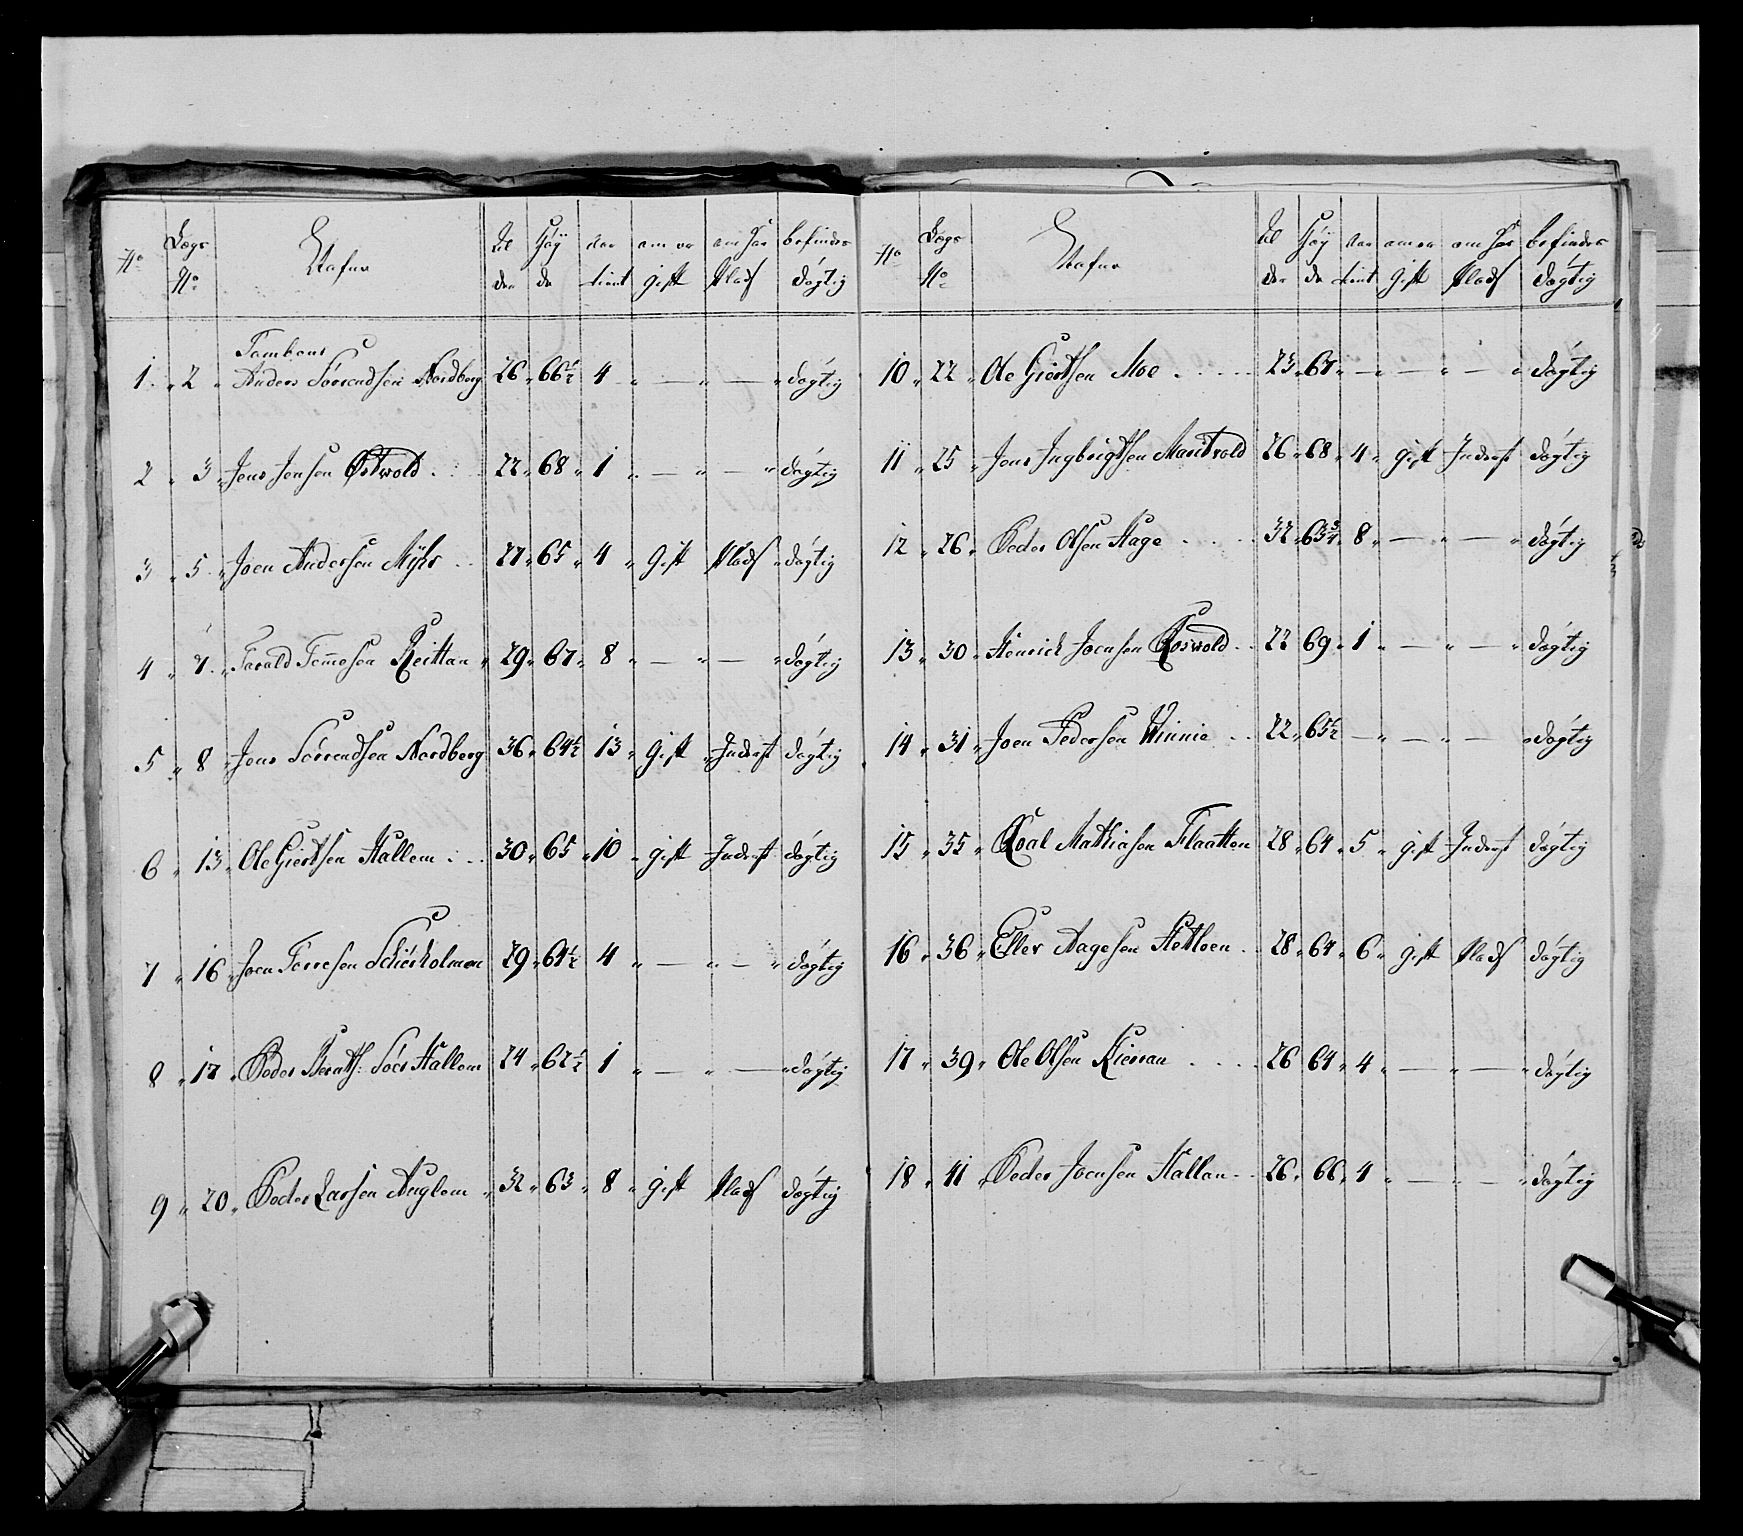 No Lægs No Nafne Al der Høy de har tient om er gift om har Plads befindes dögtig
Tambour
1 " 2 " Anders Sörrendsen Nordberg 26 " 66½ 4 " — " — " dögtig
2 " 3 " Jens Jensen Östwold 22 " 68 " 1 " — " — " dögtig
3 " 5 " Joen Andersen Myhr 27 " 65 " 4 " Gift Plads " dögtig
4 " 7 " Tarald Tommesen Reittan " 29 " 67 " 8 " — " — " dögtig
5 " 8 " Jens Sörrendsen Nordberg 36 " 64½ 13 " Gift " Inderst dögtig
6 " 13 " Ole Giertsen Hallem 30 " 65 " 10 " gift Inderst dögtig
7 " 16 " Joen Torresen Schiörholmen 29 " 64½ 4 " — " — " dögtig
8 " 17 " Peder Bernth: Söer Hallem 24 " 62½ 1 " — " — " dögtig
9 " 20 " Peder Larsen Auglem " 32 " 63 " 8 " gift Plads dögtig
No Lægs No Nafne Al der Höy de har tient om er gift om har Plads befindes dögtig
10 " 22 " Ole Giertsen Moe 23 " 67 " — " — " — " dögtig
11 " 25 " Jens Ingbrigtsen Maritvold 26 " 68 " 4 " gift Inderst dögtig
12 " 26 " Peder Olsen Hage 32 " 63¾ 8 " — " — " dögtig
13 " 30 " Henrich Joensen Roswold 22 69 " 1 " — " — " dögtig
14 " 31 " Joen Pedersen Winnie 22 " 65½ — " — " — " dögtig
15 " 35 " Roal Mathiasen Flaatten 28 " 64 " 5 " gift Inderst dögtig
16 " 36 " Eller Aagesen Hetloen 28 " 64 " 6 " gift Plads dögtig
17 " 39 " Ole Olsen Kierran 26 64 " 4 " — " — " dögtig
18 " 41 " Peder Joensen Hallan 26 " 66 " 4 " — " — " dögtig